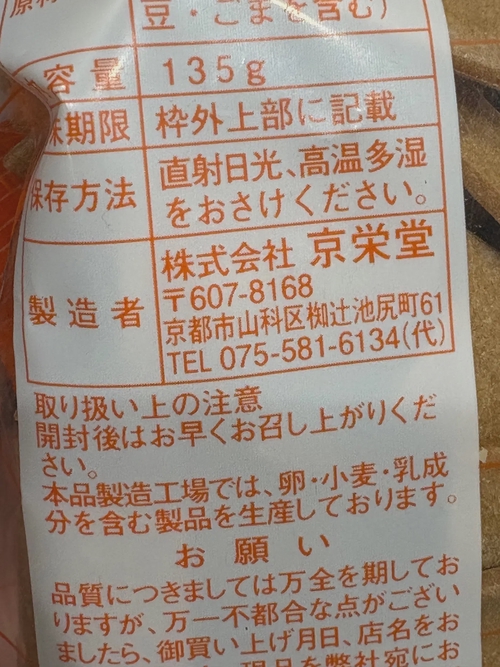 豆・ごまを含む)
容量 135g
期限 枠外上部に記載
保存方法 直射日光、高温多湿
をおさけください。
製造者 株式会社 京栄堂
〒607-8168
京都市山科区椥辻池尻町61
TEL 075-581-6134(代)
取り扱い上の注意
開封後はお早くお召し上がりくだ
さい。
本品製造工場では、卵・小麦・乳成
分を含む製品を生産しております。
お願い
品質につきましては万全を期してお
りますが、万一不都合な点がござい
ましたら、御買い上げ月日、店名をお
現品を弊社宛にお